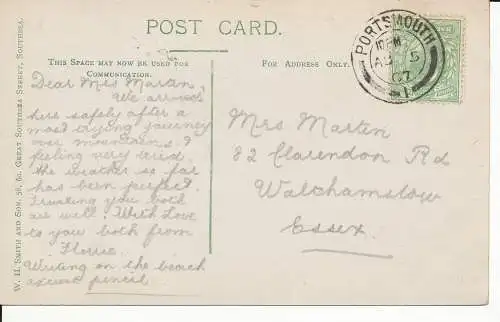 POST CARD.
THIS SPACE MAY NOW BE USED FOR
COMMUNICATION.
FOR ADDRESS ONLY.
PORTSMOUTH
AU 5
07
1
Dear Mrs Martin,
We arrived
here safely after a
most trying journey
over mountains. I
feeling very tired
the weather so far
has been perfect.
Trusting you both
are well. With Love
to you both from
Florrie.
Writing on the beach
excuse pencil
Mrs Marten
82 Clarendon Rd
Walthamstow
Essex.
W. H. SMITH AND SON, 56, 60, GREAT SOUTHSEA STREET, SOUTHSEA.